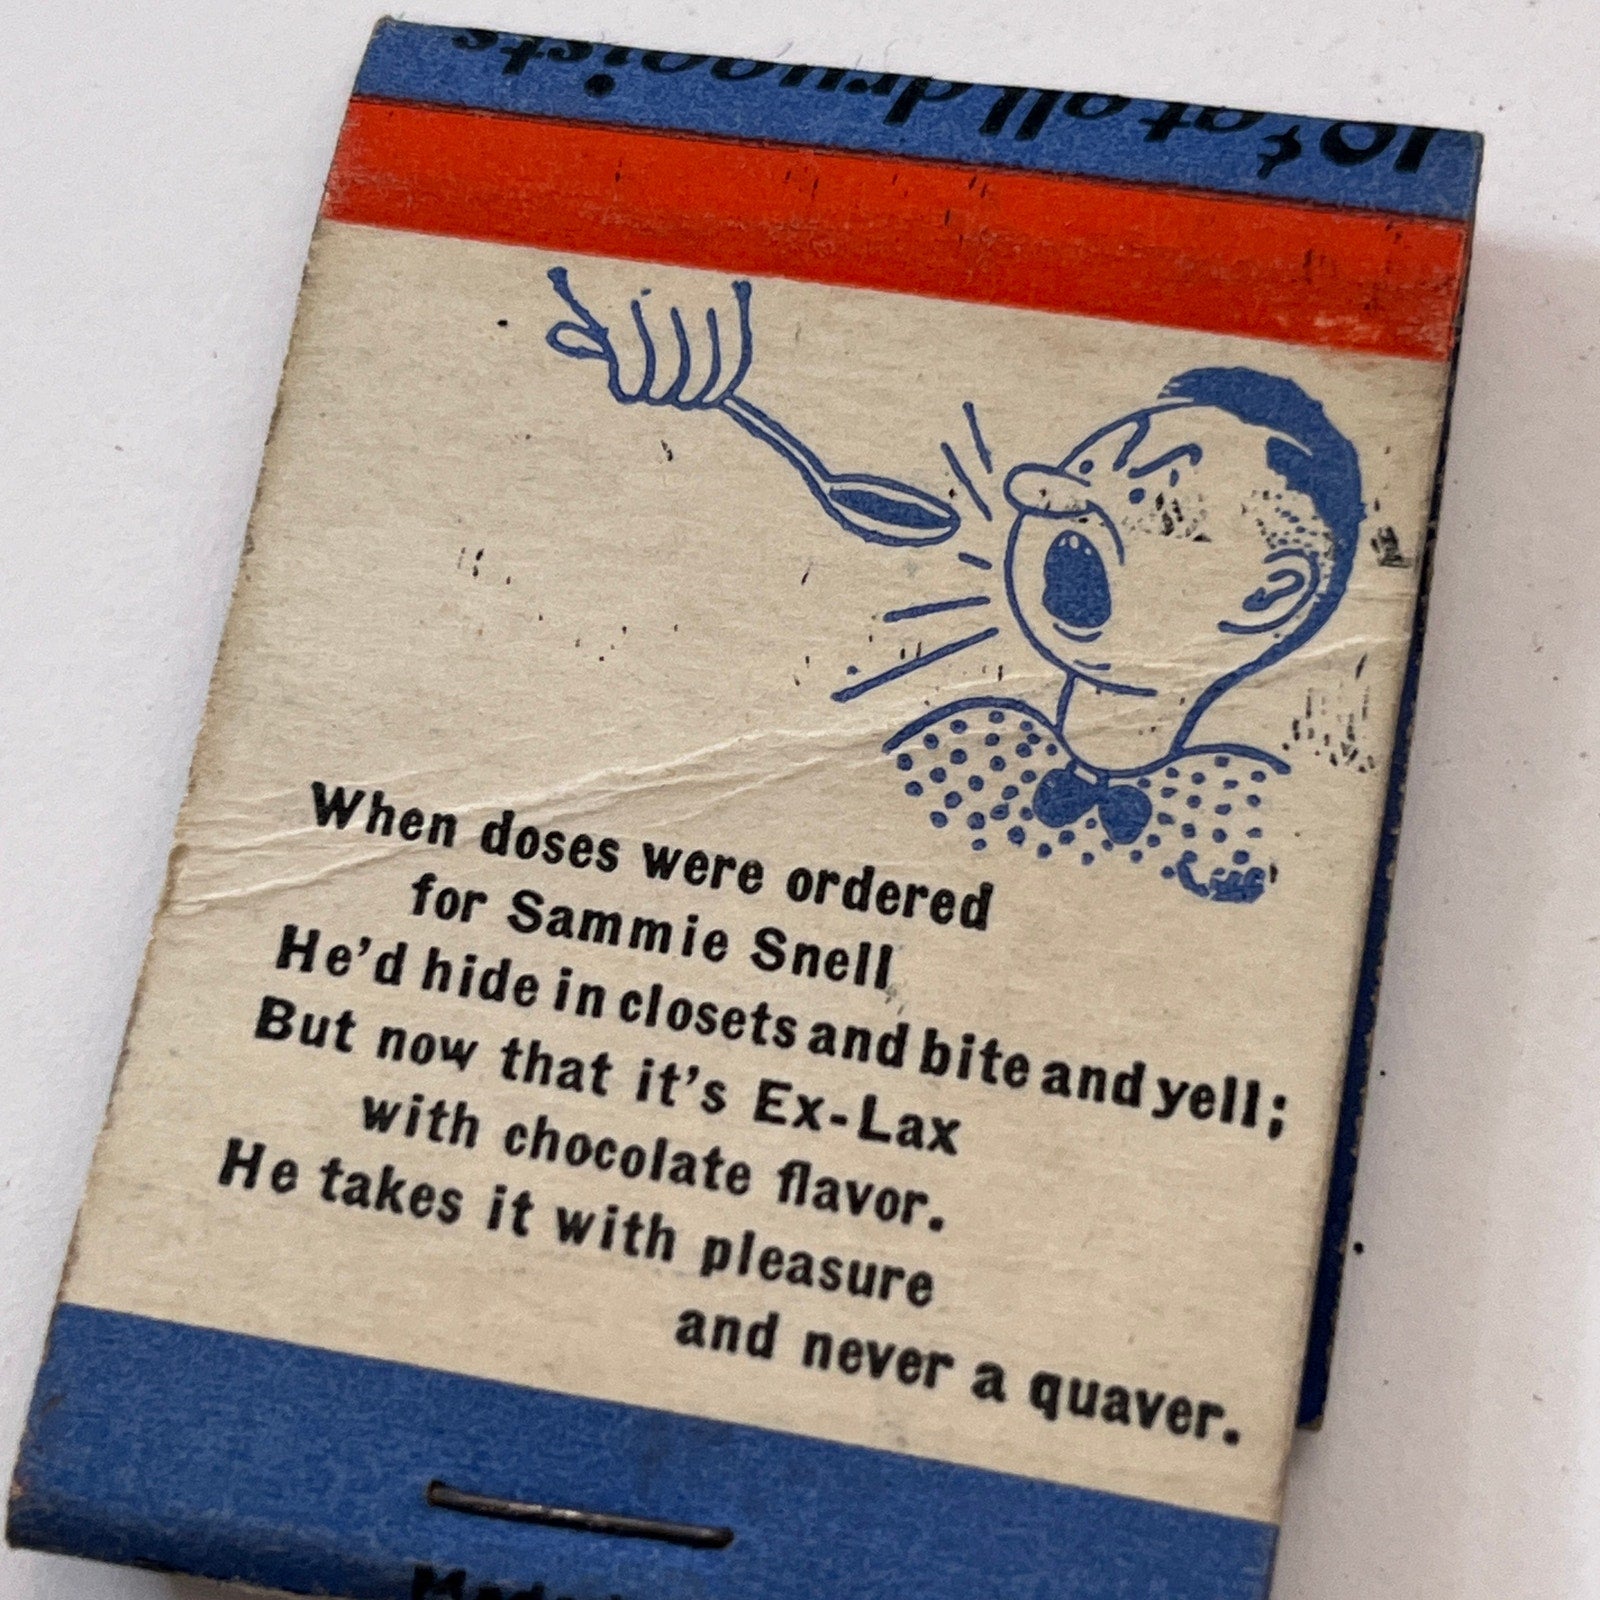 10¢ at all druggists
When doses were ordered
for Sammie Snell
He'd hide in closets and bite and yell;
But now that it's Ex-Lax
with chocolate flavor.
He takes it with pleasure
and never a quaver.